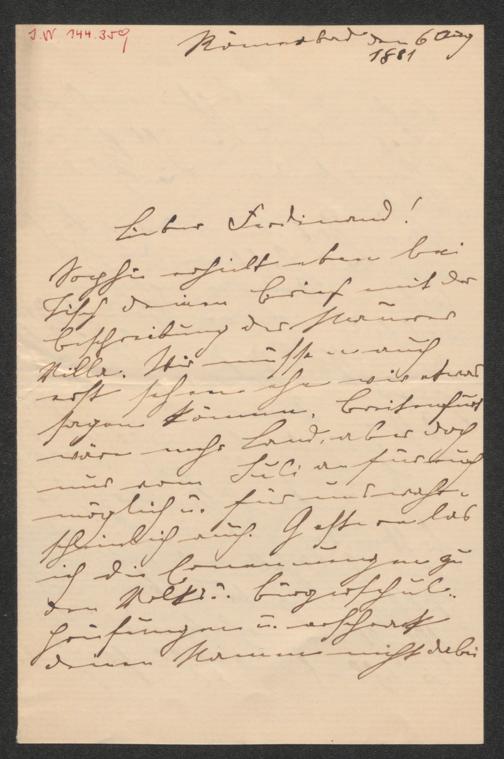 I.N. 144.359
Römerbad den 6 Aug
1881
Lieber Ferdinand!
Sophie erhielt eben bei
Tisch deinen Brief mit der
Beschreibung der Maurer
Villa. Wir müssen auch
erst sehen ehe wir etwas
sagen können. Breitenfurt
wäre mehr Land, aber doch
nur vom Juli an für euch
möglich u. für uns wahr-
scheinlich auch. Gestern las
ich die Ernennungen zu
den Volks u. Bürgerschul-
prüfungen u. erschrak
deinen Namen nicht dabei